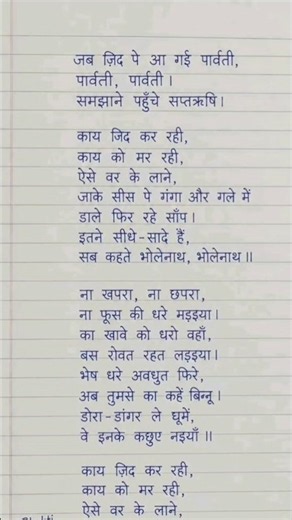 जब ज़िद पे आ गई पार्वती,
पार्वती, पार्वती।
समझाने पहुँचे सप्तऋषि।
काय जिद कर रही,
काय को मर रही,
ऐसे वर के लाने,
जाके सीस पे गंगा और गले में
डाले फिर रहे साँप।
इतने सीधे-सादे हैं,
सब कहते भोलेनाथ, भोलेनाथ॥
ना खपरा, ना छपरा,
ना फूस की धरे मड़इया।
का खावे को धरो वहाँ,
बस रोवत रहत लड़इया।
भेष धरे अवधुत फिरे,
अब तुमसे का कहें बिन्नू।
डोरा-डांगर ले घूमें,
वे इनके कछुए नइयाँ॥
काय ज़िद कर रही,
काय को मर रही,
ऐसे वर के लाने,